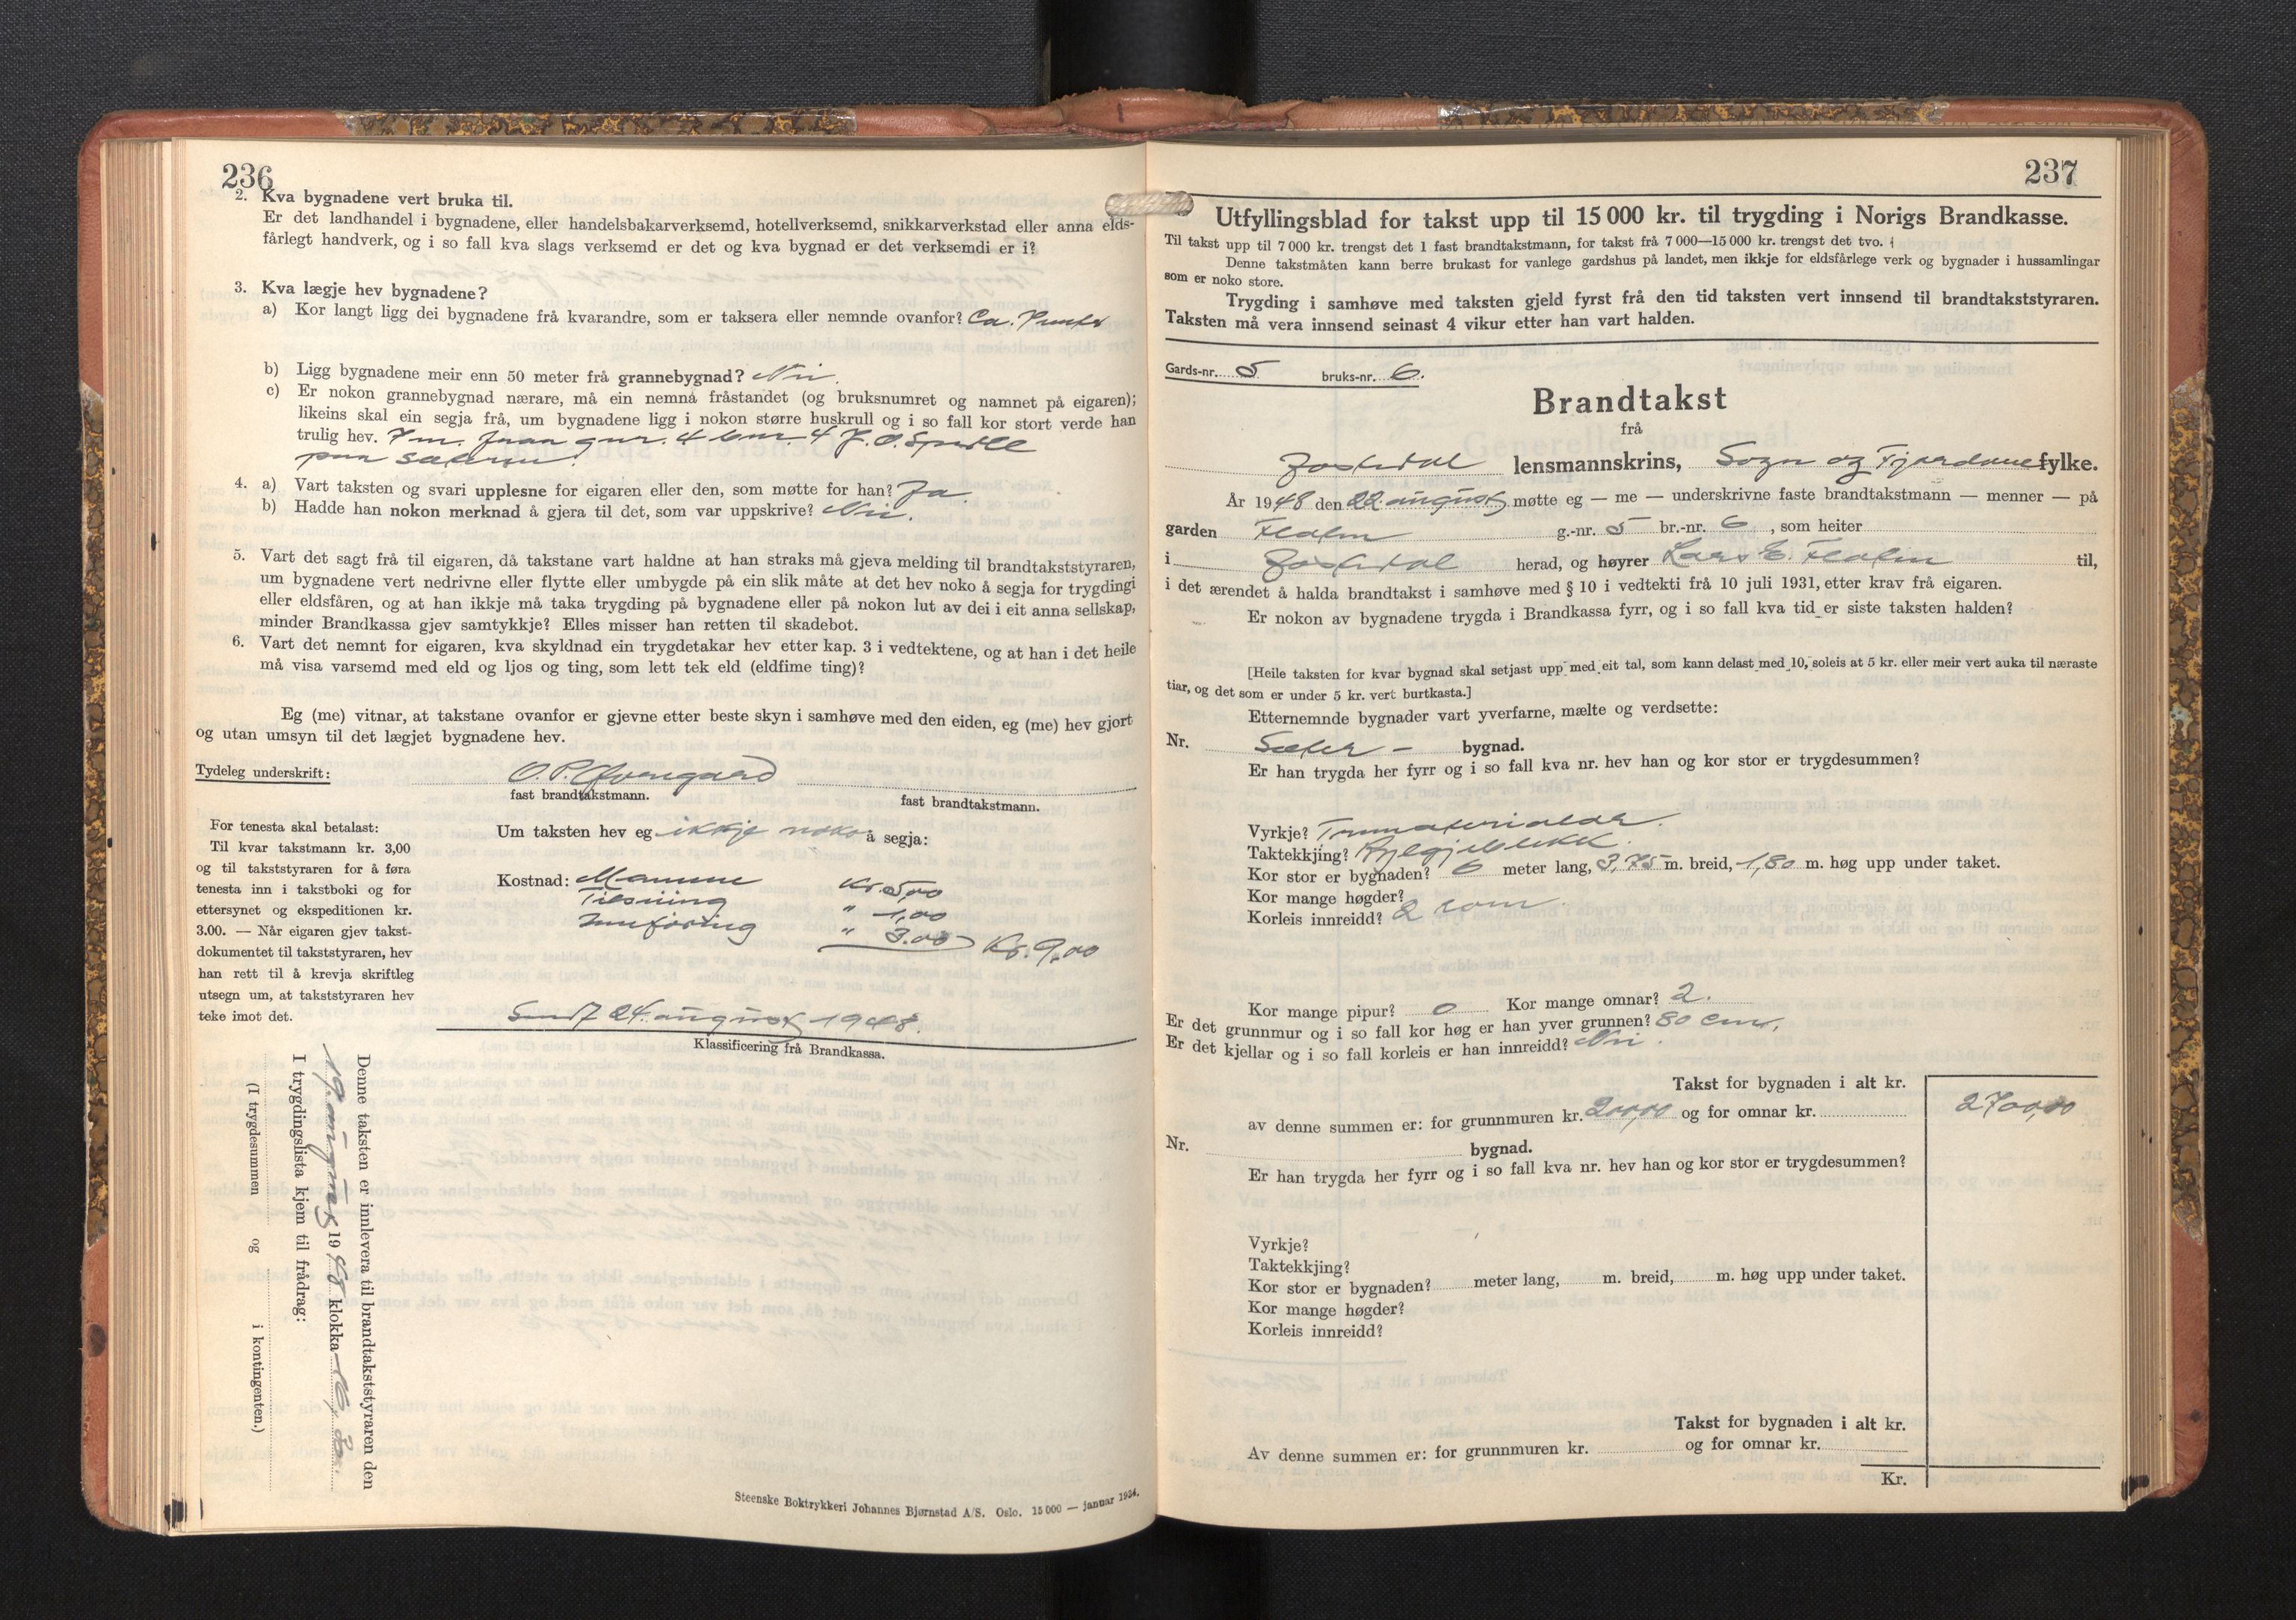 236
2. Kva bygnadene vert bruka til.
Er det landhandel i bygnadene, eller handelsbakarverksemd, hotellverksemd, snikkarverkstad eller anna elds-
fårlegt handverk, og i so fall kva slags verksemd er det og kva bygnad er det verksemdi er i?
3. Kva lægje hev bygnadene?
a) Kor langt ligg dei bygnadene frå kvarandre, som er taksera eller nemnde ovanfor? Ca.
b) Ligg bygnadene meir enn 50 meter frå grannebygnad? Nei.
c) Er nokon grannebygnad nærare, må ein nemna fråstandet (og bruksnumret og namnet på eigaren);
likeins skal ein segja frå, um bygnadene ligg i nokon større huskrull og i so fall kor stort verde han
trulig hev. 7 m. fraa gnr. 4 bnr 4
paa
4. a) Vart taksten og svari upplesne for eigaren eller den, som møtte for han? Ja.
b) Hadde han nokon merknad å gjera til det, som var uppskrive? Nei.
5. Vart det sagt frå til eigaren, då takstane vart haldne at han straks må gjeva melding til brandtakststyraren,
um bygnadene vert nedrivne eller flytte eller umbygde på ein slik måte at det hev noko å segja for trygdingi
eller eldsfåren, og at han ikkje må taka trygding på bygnadene eller på nokon lut av dei i eit anna sellskap,
minder Brandkassa gjev samtykkje? Elles misser han retten til skadebot.
6. Vart det nemnt for eigaren, kva skyldnad ein trygdetakar hev etter kap. 3 i vedtektene, og at han i det heile
må visa varsemd med eld og ljos og ting, som lett tek eld (eldfime ting)?
Eg (me) vitnar, at takstane ovanfor er gjevne etter beste skyn i samhøve med den eiden, eg (me) hev gjort
og utan umsyn til det lægjet bygnadene hev.
Tydeleg underskrift: O. P. Øvregaard
fast brandtakstmann. fast brandtakstmann.
For tenesta skal betalast:
Til kvar takstmann kr. 3,00
og til takststyraren for å føra
tenesta inn i takstboki og for
ettersynet og ekspeditionen kr.
3.00. — Når eigaren gjev takst-
dokumentet til takststyraren, hev
han rett til å krevja skriftleg
utsegn um, at takststyraren hev
teke imot det.
Um taksten hev eg ikkje noko å segja:
Kostnad: Mannen Kr. 5,00
Tilsining " 1,00
Innføring " 3.00 Kr. 9,00
Sendt 24. august 1948.
Klassificering frå Brandkassa.
Denne taksten er innlevera til brandtakststyraren den
19. august 1948 klokka 16,30.
I trygdingslista kjem til frådrag:
(I trygdesummen og i kontingenten.)
Steenske Boktrykkeri Johannes Bjørnstad A/S. Oslo. 15 000 — januar 1934.
237
Utfyllingsblad for takst upp til 15 000 kr. til trygding i Norigs Brandkasse.
Til takst upp til 7 000 kr. trengst det 1 fast brandtakstmann, for takst frå 7 000—15 000 kr. trengst det tvo.
Denne takstmåten kann berre brukast for vanlege gardshus på landet, men ikkje for eldsfårlege verk og bygnader i hussamlingar
som er noko store.
Trygding i samhøve med taksten gjeld fyrst frå den tid taksten vert innsend til brandtakststyraren.
Taksten må vera innsend seinast 4 vikur etter han vart halden.
Gards-nr. 5 bruks-nr. 6.
Brandtakst
frå
Jostedal lensmannskrins, Sogn og Fjordane fylke.
År 1948 den 22. august møtte eg — me — underskrivne faste brandtakstmann — menner — på
garden Fladm g.-nr. 5 br.-nr. 6 , som heiter
i Jostedal herad, og høyrer Lars E. Fladm til,
i det ærendet å halda brandtakst i samhøve med § 10 i vedtekti frå 10 juli 1931, etter krav frå eigaren.
Er nokon av bygnadene trygda i Brandkassa fyrr, og i so fall kva tid er siste taksten halden?
[Heile taksten for kvar bygnad skal setjast upp med eit tal, som kann delast med 10, soleis at 5 kr. eller meir vert auka til næraste
tiar, og det som er under 5 kr. vert burtkasta.]
Etternemnde bygnader vart yverfarne, mælte og verdsette:
Nr. Sæter – bygnad.
Er han trygda her fyrr og i so fall kva nr. hev han og kor stor er trygdesummen?
Vyrkje? Trematerialer.
Taktekkjing? Bylgjeblekk.
Kor stor er bygnaden? 6 meter lang, 3,75 m. breid, 1,80 m. høg upp under taket.
Kor mange høgder?
Korleis innreidd? 2 rom.
Kor mange pipur? 0 Kor mange omnar? 2.
Er det grunnmur og i so fall kor høg er han yver grunnen? 80 cm.
Er det kjellar og i so fall korleis er han innreidd? Nei.
Takst for bygnaden i alt kr. 2700,00
av denne summen er: for grunnmuren kr. 200,00 og for omnar kr.
Nr. bygnad.
Er han trygda her fyrr og i so fall kva nr. hev han og kor stor er trygdesummen?
Vyrkje?
Taktekkjing?
Kor stor er bygnaden? meter lang, m. breid, m. høg upp under taket.
Kor mange høgder?
Korleis innreidd?
Takst for bygnaden i alt kr.
Av denne summen er: for grunnmuren kr. og for omnar kr.
Kr.